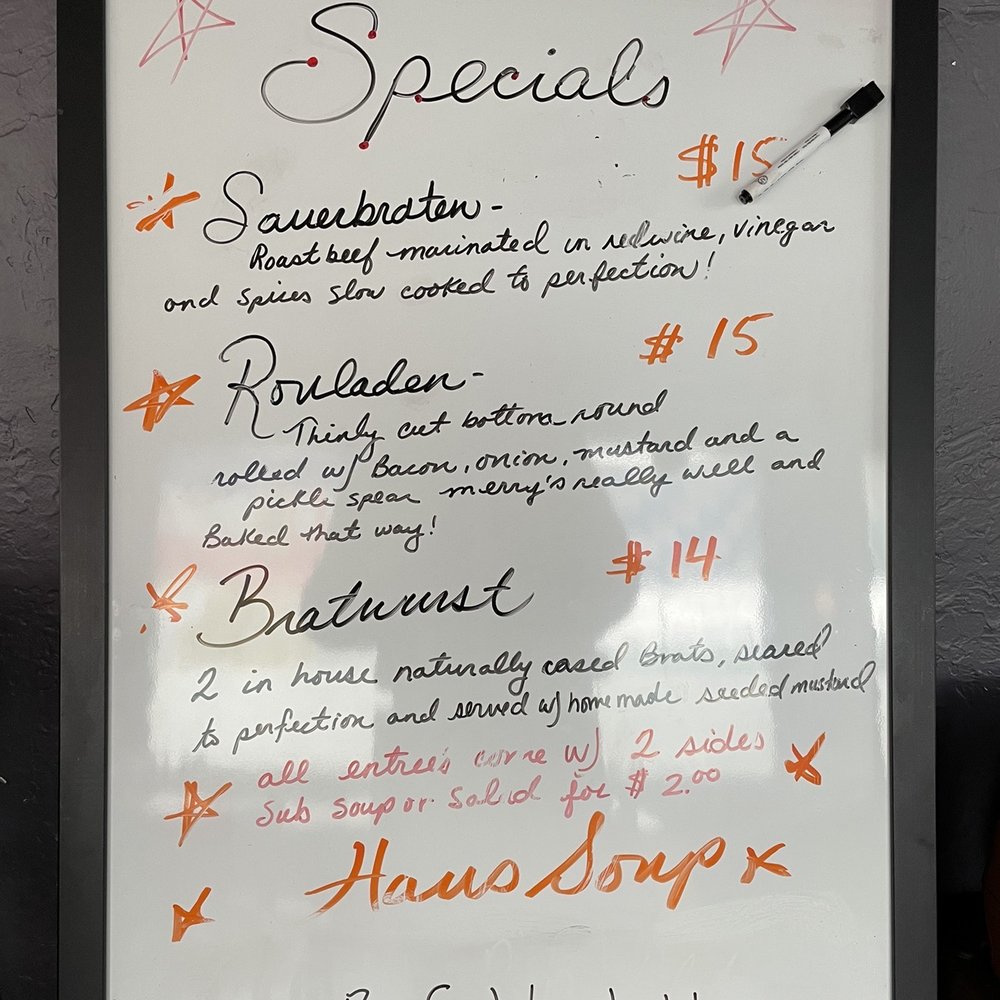 Specials
$15
Sauerbraten-
Roast beef marinated in red wine, vinegar
and spices slow cooked to perfection!
$15
Rouladen-
Thinly cut bottom round
rolled w/ Bacon, onion, mustard and a
pickle spear merry's really well and
Baked that way!
$14
Bratwurst
2 in house naturally cased Brats, seared
to perfection and served w/ homemade seeded mustard
all entrée's come w/ 2 sides
Sub Soup or Salad for $2.00
Haus Soup